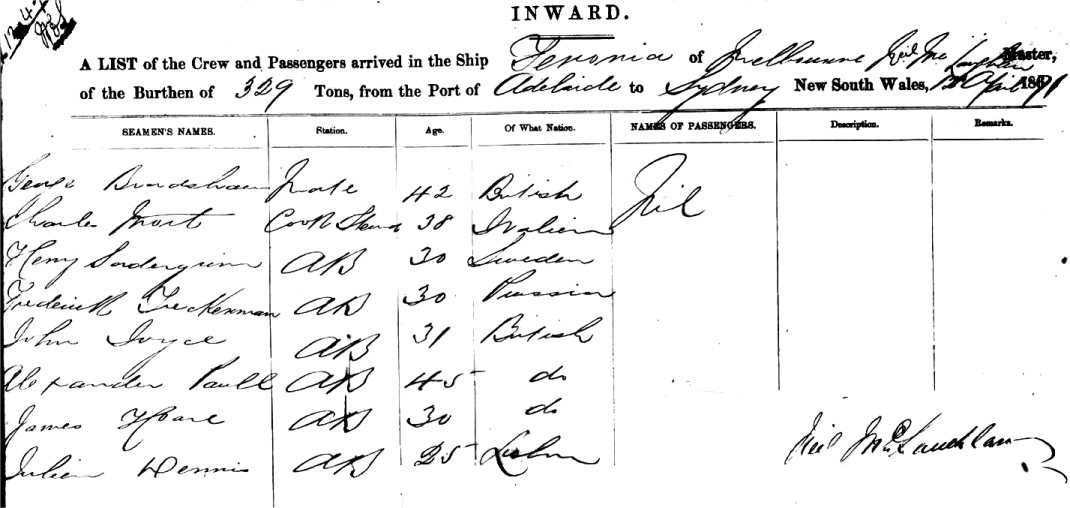 INWARD.
A LIST of the Crew and Passengers arrived in the Ship Feronia of Melbourne Neil Mc Lauchlan Master,
of the Burthen of 329 Tons, from the Port of Adelaide to Sydney New South Wales, April 1871
SEAMEN'S NAMES. Station. Age. Of What Nation. NAMES OF PASSENGERS. Description. Remarks.
George Bradshaw Mate 42 British Nil
Charles Cook Steward 38 Italian
Henry 30 Sweden
AB
Frederick AB 30 Prussia
John Joyce AB 31 British
Alexander Paull AB 45 do
James Hoare AB 30 do
Julien Dennis AB 25 Lisbon
Neil McLauchlan